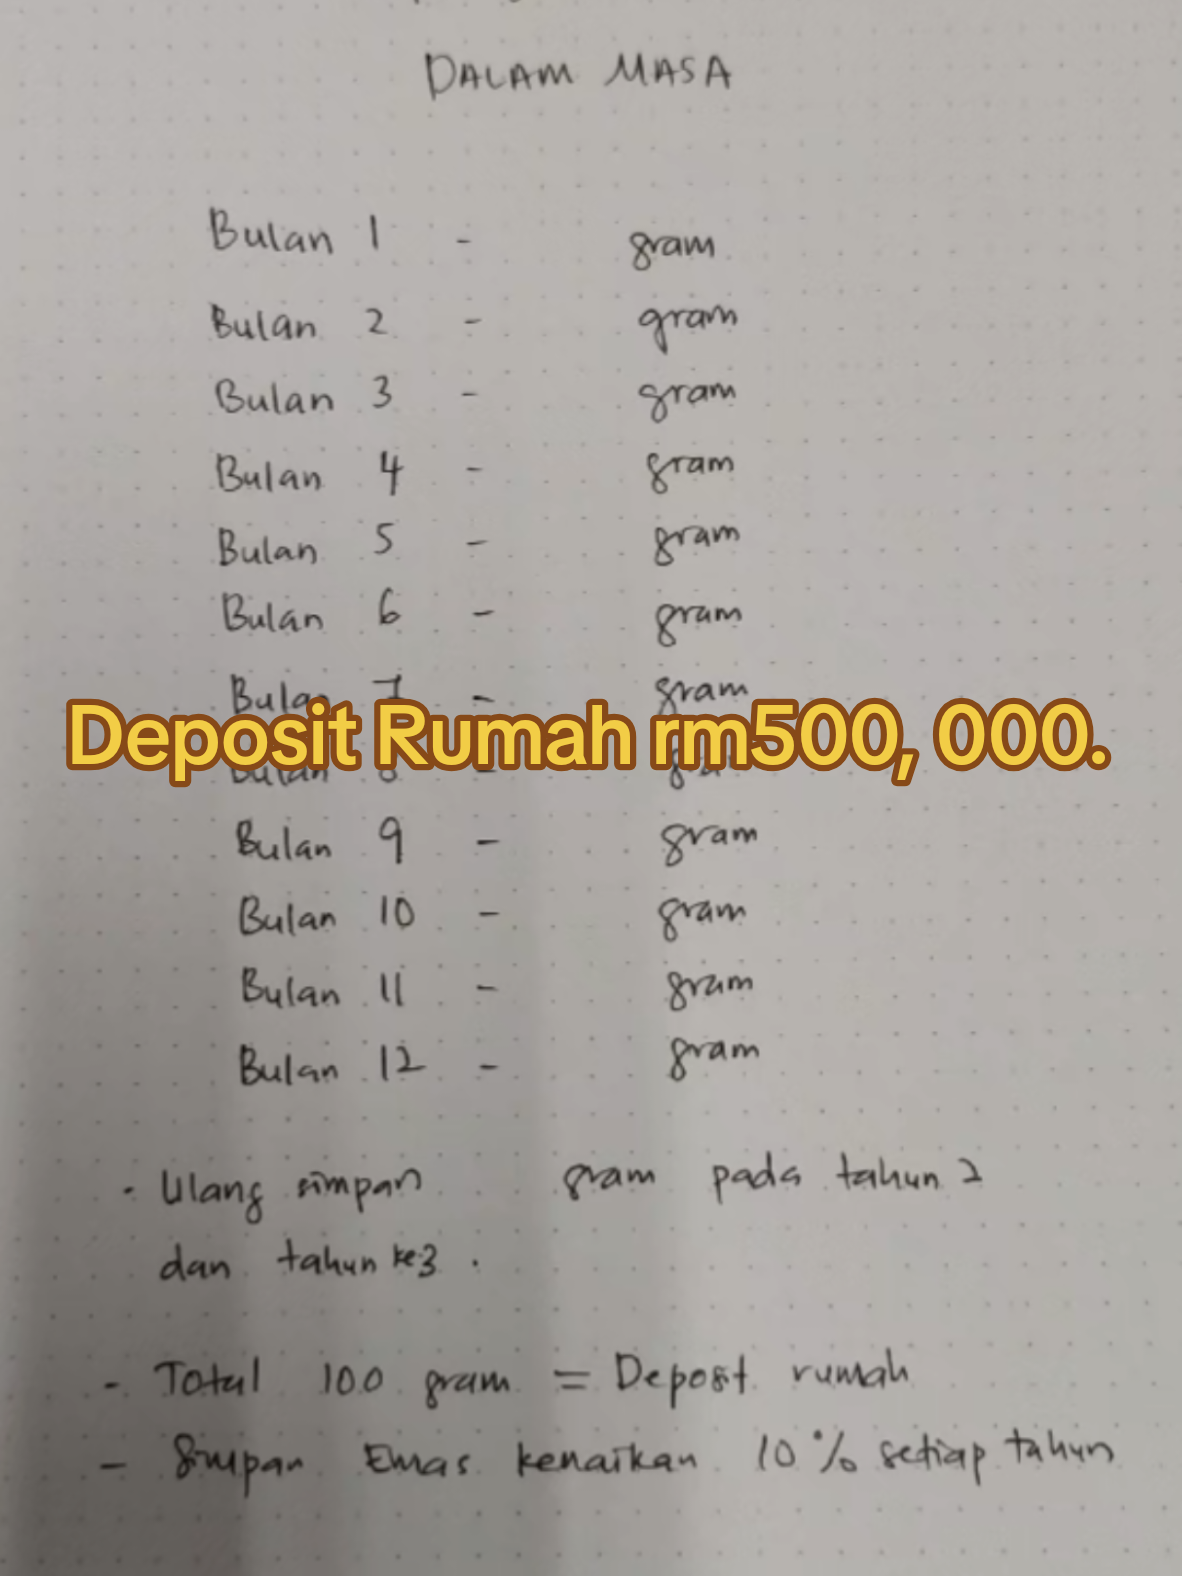 DALAM MASA
Bulan 1 - gram
Bulan 2 - gram
Bulan 3 - gram
Bulan 4 - gram
Bulan 5 - gram
Bulan 6 - gram
Bulan 7 - gram
Deposit Rumah rm500, 000.
Bulan 8 - gram
Bulan 9 - gram
Bulan 10 - gram
Bulan 11 - gram
Bulan 12 - gram
• Ulang simpan gram pada tahun 2
dan tahun ke 3.
- Total 100 gram = Deposit rumah
- Simpan Emas kenaikan 10% setiap tahun